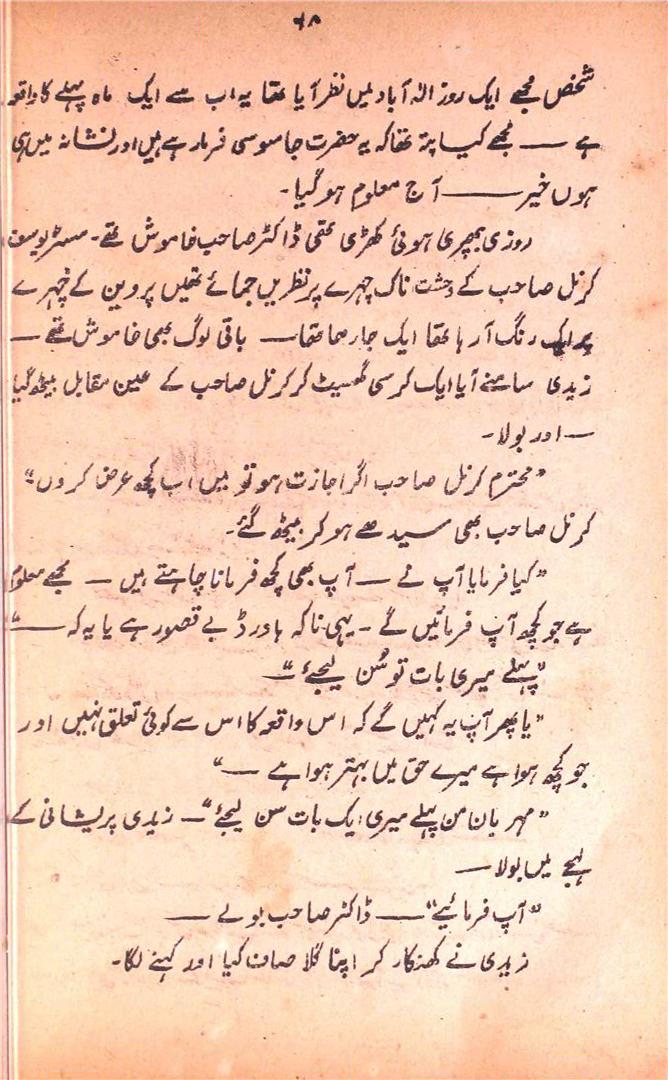 ۶۸
شخص مجھے ایک روز الہ آباد میں نظر آیا تھا یہ اب سے ایک ماہ پہلے کا واقعہ
ہے — مجھے کیا پتہ تھا کہ یہ حضرت جاسوسی فرما رہے ہیں اور نشانہ میں ہی
ہوں خیر —— آج معلوم ہو گیا۔
روزی بپھری ہوئی کھڑی تھی ڈاکٹر صاحب خاموش تھے۔ مسٹر یوسف
کرنل صاحب کے دہشت ناک چہرے پر نظریں جمائے تھیں پروین کے چہرے
پر ایک رنگ آ رہا تھا ایک جا رہا تھا— باقی لوگ بھی خاموش تھے —
زیدی سامنے آیا ایک کرسی گھسیٹ کر کرنل صاحب کے عین مقابل بیٹھ گیا
— اور بولا۔
”محترم کرنل صاحب اگر اجازت ہو تو میں اب کچھ عرض کروں“
کرنل صاحب بھی سیدھے ہو کر بیٹھ گئے۔
”کیا فرمایا آپ نے — آپ بھی کچھ فرمانا چاہتے ہیں — مجھے معلوم
ہے جو کچھ آپ فرمائیں گے ۔ یہی نا کہ ہاورڈ بے قصور ہے یا یہ کہ —“
”پہلے میری بات تو سُن لیجئے —“
”یا پھر آپ یہ کہیں گے کہ اس واقعہ کا اس سے کوئی تعلق نہیں اور
جو کچھ ہوا ہے میرے حق میں بہتر ہوا ہے —“
”مہربان من پہلے میری ایک بات سن لیجئے“— زیدی پریشانی کے
لہجے میں بولا —
”آپ فرمائیے“ — ڈاکٹر صاحب بولے —
زیدی نے کھنکار کر اپنا گلا صاف کیا اور کہنے لگا۔